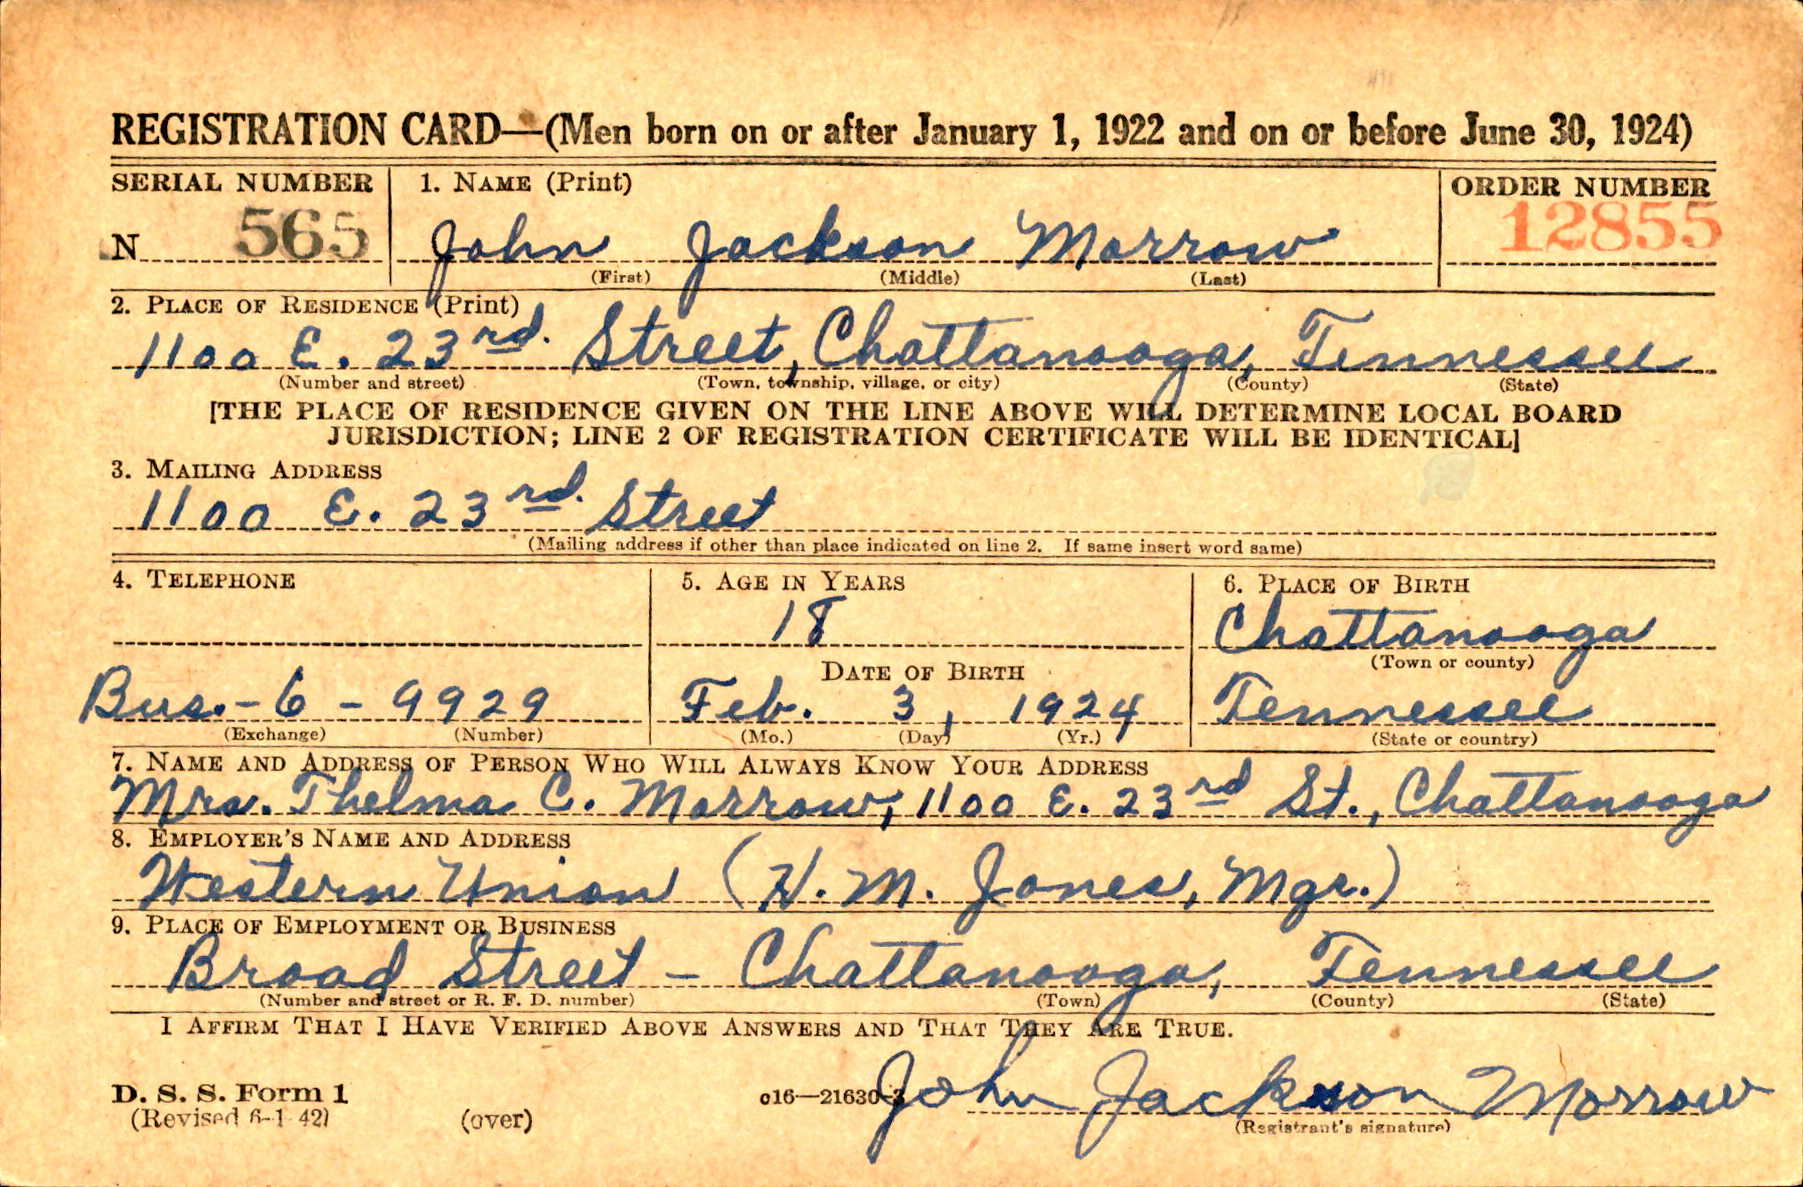 REGISTRATION CARD—(Men born on or after January 1, 1922 and on or before June 30, 1924)
SERIAL NUMBER 1. NAME (Print) ORDER NUMBER
N 565 John Jackson Morrow 12855
(First) (Middle) (Last)
2. PLACE OF RESIDENCE (Print)
1100 E. 23rd. Street, Chattanooga, Tennessee
(Number and street) (Town, township, village, or city) (County) (State)
[THE PLACE OF RESIDENCE GIVEN ON THE LINE ABOVE WILL DETERMINE LOCAL BOARD
JURISDICTION; LINE 2 OF REGISTRATION CERTIFICATE WILL BE IDENTICAL]
3. MAILING ADDRESS
1100 E. 23rd. Street
(Mailing address if other than place indicated on line 2. If same insert word same)
4. TELEPHONE 5. AGE IN YEARS 6. PLACE OF BIRTH
18 Chattanooga
DATE OF BIRTH (Town or county)
Bus.-6-9929 Feb. 3, 1924 Tennessee
(Exchange) (Number) (Mo.) (Day) (Yr.) (State or country)
7. NAME AND ADDRESS OF PERSON WHO WILL ALWAYS KNOW YOUR ADDRESS
Mrs. Thelma C. Morrow, 1100 E. 23rd St., Chattanooga
8. EMPLOYER'S NAME AND ADDRESS
Western Union (H. M. Jones, Mgr.)
9. PLACE OF EMPLOYMENT OR BUSINESS
Broad Street - Chattanooga, Tennessee
(Number and street or R. F. D. number) (Town) (County) (State)
I AFFIRM THAT I HAVE VERIFIED ABOVE ANSWERS AND THAT THEY ARE TRUE.
D. S. S. Form 1 c16—21630-3 John Jackson Morrow
(Revised 6-1-42) (over) (Registrant's signature)